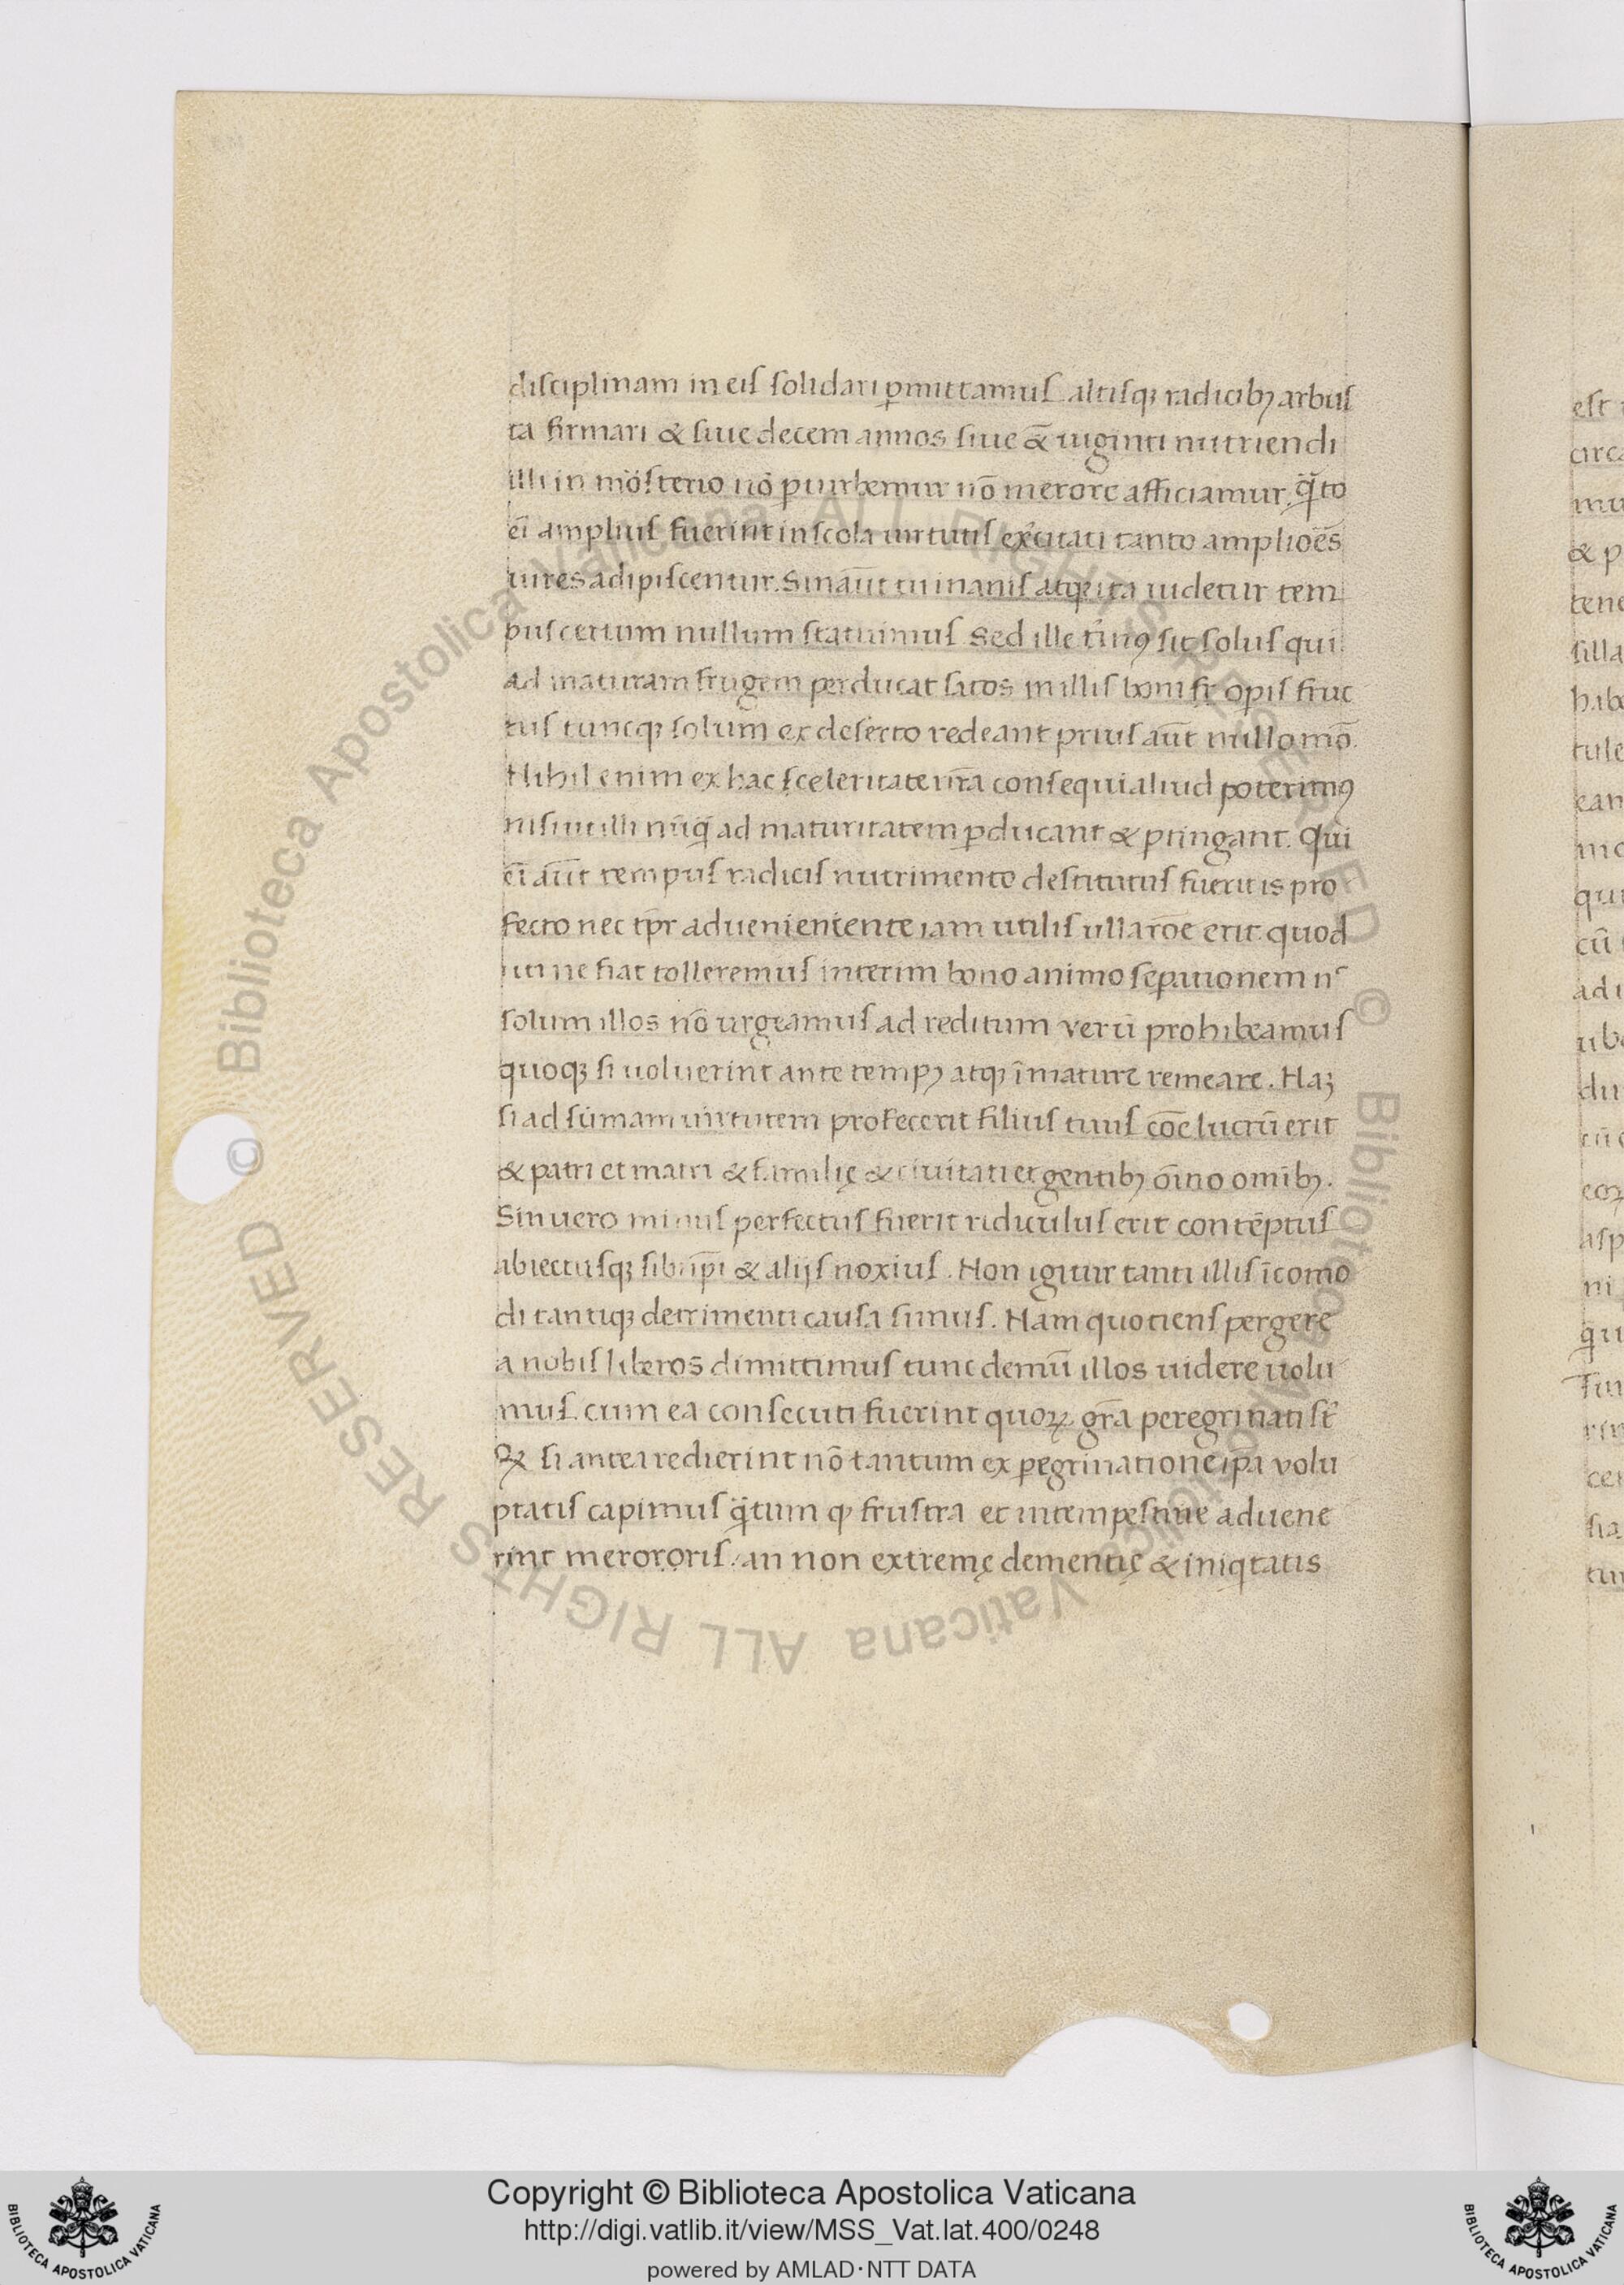 disciplinam in eis solidari ꝑmittamus altisqꝫ radicibꝫ arbus
ta firmari & siue decem annos siue & uiginti nutriendi
illi in mōsterio nō ꝑturbemur nō merore afficiamur. q̄to
ei ampliuſ fuerint in scola uirtutis exẽcitati tanto amplioēs
uires adipiscentur. Sin aūt tui inanis atqꝫ ita uidetur tem
pus certum nullum statuimus Sed ille t̃minꝯ sit solus qui
ad maturam frugem perducat satos in illis boni sr̄ opis fruc
tus tuncqꝫ solum ex deserto redeant prius aūt nullo mō.
Nihil enim ex hac sceleritate nr̄a consequi aliud poterimꝯ
nisi ut illi nūq̄ ad maturitatem ꝑducant & ptingant. Qui
ei aūt tempus radicis nutrimento destitutus fuerit is pro
fecto nec tp̄r aduenientente iam utilis ulla rōe erit quod
uti ne fiat tolleremus interim bono animo seꝑationem nc̄
solum illos nō urgeamus ad reditum verū prohibeamus
quoqꝫ si uoluerint ante tempꝫ atqꝫ īmature remeare. Naꝫ
si ad sūmam uirtutem profecerit filius tuus cōe lucrū erit
& patri et matri & familię & ciuitati et gentibꝫ oīno omībꝫ.
Sin uero minus perfectus fuerit ridiculus erit contēptus
abiectusqꝫ sibi ip̄i & alijs noxius. Non igitur tanti illis īcomo
di tantiqꝫ detrimenti causa simus. Nam quotiens pergere
a nobis liberos dimittimus tunc demū illos uidere uolu
mus. cum ea consecuti fuerint quoꝝ gr̄a peregrinati st̄
Qꝫ si antea redierint nō tantum ex ꝑegrinatione ipa volu
ptatis capimus q̄tum qꝫ frustra et intempestiue aduene
rint merororis. an non extremę dementię & iniqtatis